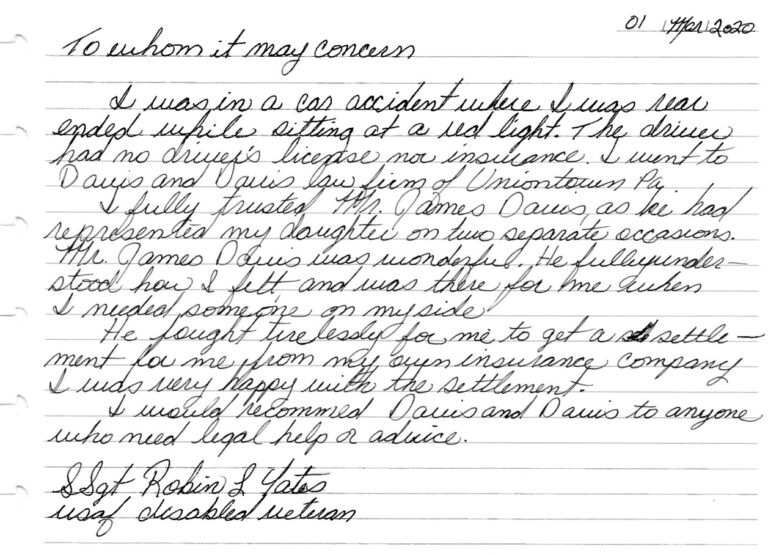 01 Mar 2020
To whom it may concern
I was in a car accident where I was rear
ended while sitting at a red light. The driver
had no driver's license nor insurance. I went to
Davis and Davis law firm of Uniontown Pa.
I fully trusted Mr. James Davis, as he had
represented my daughter on two separate occasions.
Mr. James Davis was wonderful. He fully under-
stood how I felt and was there for me when
I needed someone on my side
He fought tirelessly for me to get a settle-
ment for me from my own insurance company
I was very happy with the settlement.
I would recommed Davis and Davis to anyone
who need legal help or advice.
SSgt Robin L Yates
usaf disabled veteran